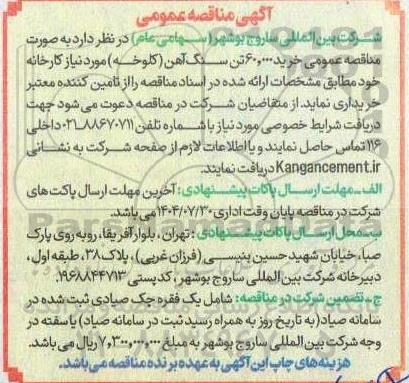 آگهی مناقصه عمومی
شرکت بین المللی ساروج بوشهر (سهامی عام) در نظر دارد به صورت
مناقصه عمومی خرید ۶۰,۰۰۰ تن سنگ آهن (کلوخه) مورد نیاز کارخانه
خود مطابق مشخصات ارائه شده در اسناد مناقصه را از تامین کننده معتبر
خریداری نماید. از متقاضیان شرکت در مناقصه دعوت می شود جهت
دریافت شرایط خصوصی مورد نیاز با شماره تلفن ۸۸۶۷۰۷۱۱-۰۲۱ داخلی
۱۱۶ تماس حاصل نمایند و یا اطلاعات لازم از صفحه شرکت به نشانی
Kangancement.ir دریافت نمایند.
الف-مهلت ارسال پاکات پیشنهادی: آخرین مهلت ارسال پاکت های
شرکت در مناقصه پایان وقت اداری ۱۴۰۴/۰۷/۳۰ می باشد.
ب-محل ارسال پاکات پیشنهادی: تهران، بلوار آفریقا، روبه روی پارک
صبا، خیابان شهید حسین پنیسی (فرزان غربی)، پلاک ۳۸، طبقه اول،
دبیرخانه شرکت بین المللی ساروج بوشهر، کد پستی ۱۹۶۸۸۴۴۷۱۳.
ج-تضمین شرکت در مناقصه: شامل یک فقره چک صیادی ثبت شده در
سامانه صیاد (به تاریخ روز به همراه رسید ثبت در سامانه صیاد) یا سفته در
وجه شرکت بین المللی ساروج بوشهر به مبلغ ۷,۳۰۰,۰۰۰,۰۰۰ ریال می باشد.
هزینه های چاپ این آگهی به عهده برنده مناقصه می باشد.